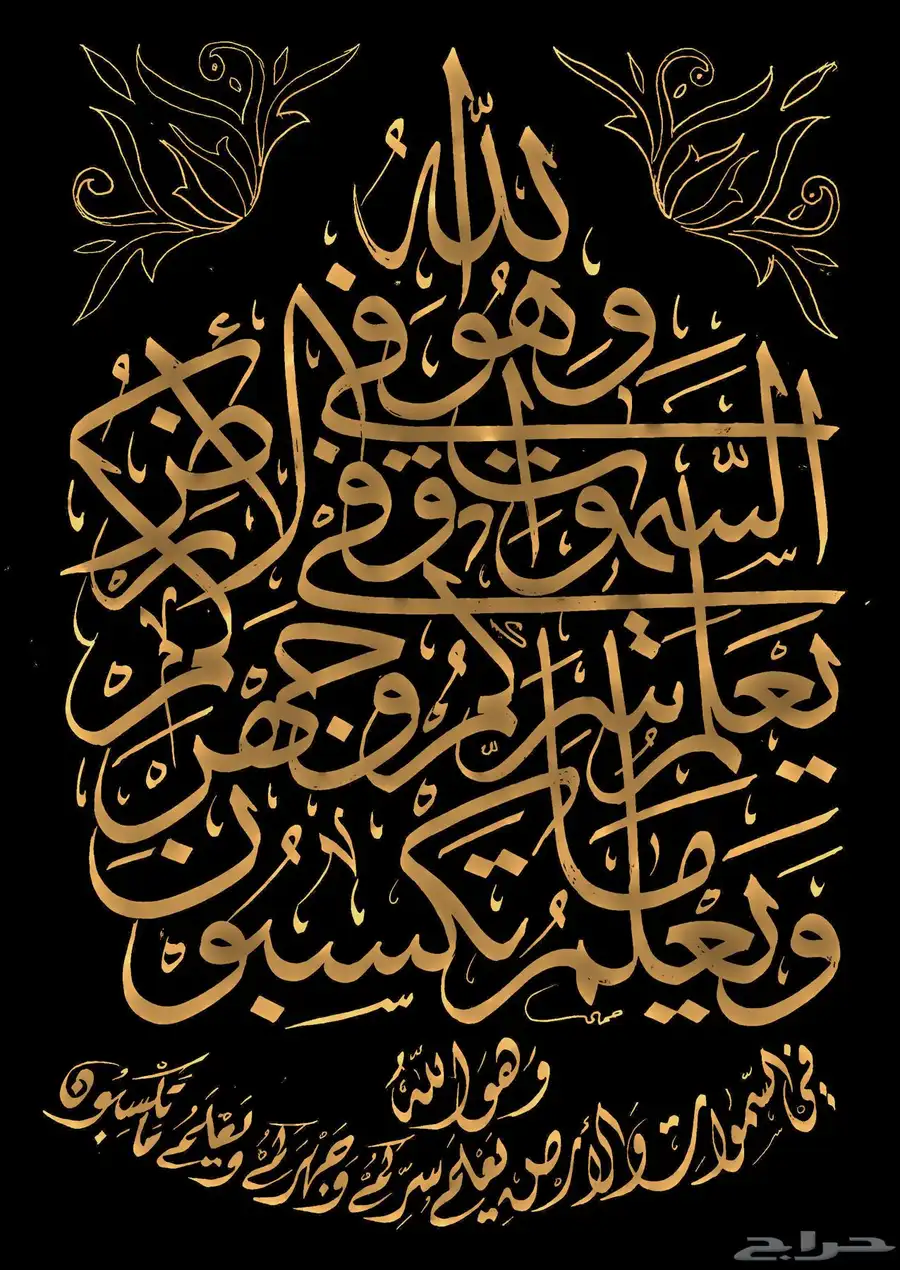 وَهُوَ اللّٰهُ
فِي السَّمٰوٰتِ وَفِي الْأَرْضِ
يَعْلَمُ سِرَّكُمْ وَجَهْرَكُمْ
وَيَعْلَمُ مَا تَكْسِبُونَ
وَهُوَ اللّٰهُ
فِي السَّمَوَاتِ وَالْأَرْضِ يَعْلَمُ سِرَّكُمْ وَجَهْرَكُمْ وَيَعْلَمُ مَا تَكْسِبُونَ
حراج